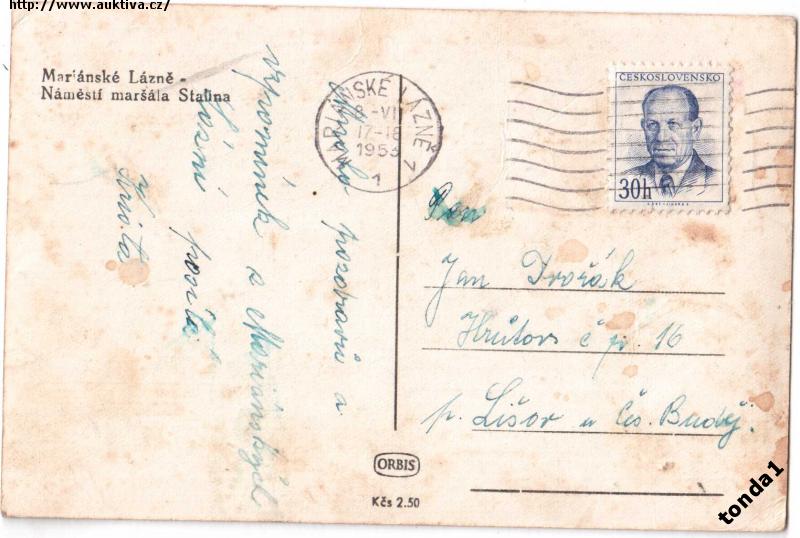 http://www.auktiva.cz/
Mariánské Lázně -
Náměstí maršála Stalina
Mnoho pozdravů a
vzpomínek z Mariánských
Lázní posílá
MARIÁNSKÉ LÁZNĚ 7
8.-VI
17-18
1953
1
ČESKOSLOVENSKO
30h
Pan
Jan Dvořák
č p. 16
p. Lišov u Čes. Buděj.
ORBIS
Kčs 2.50
tonda1